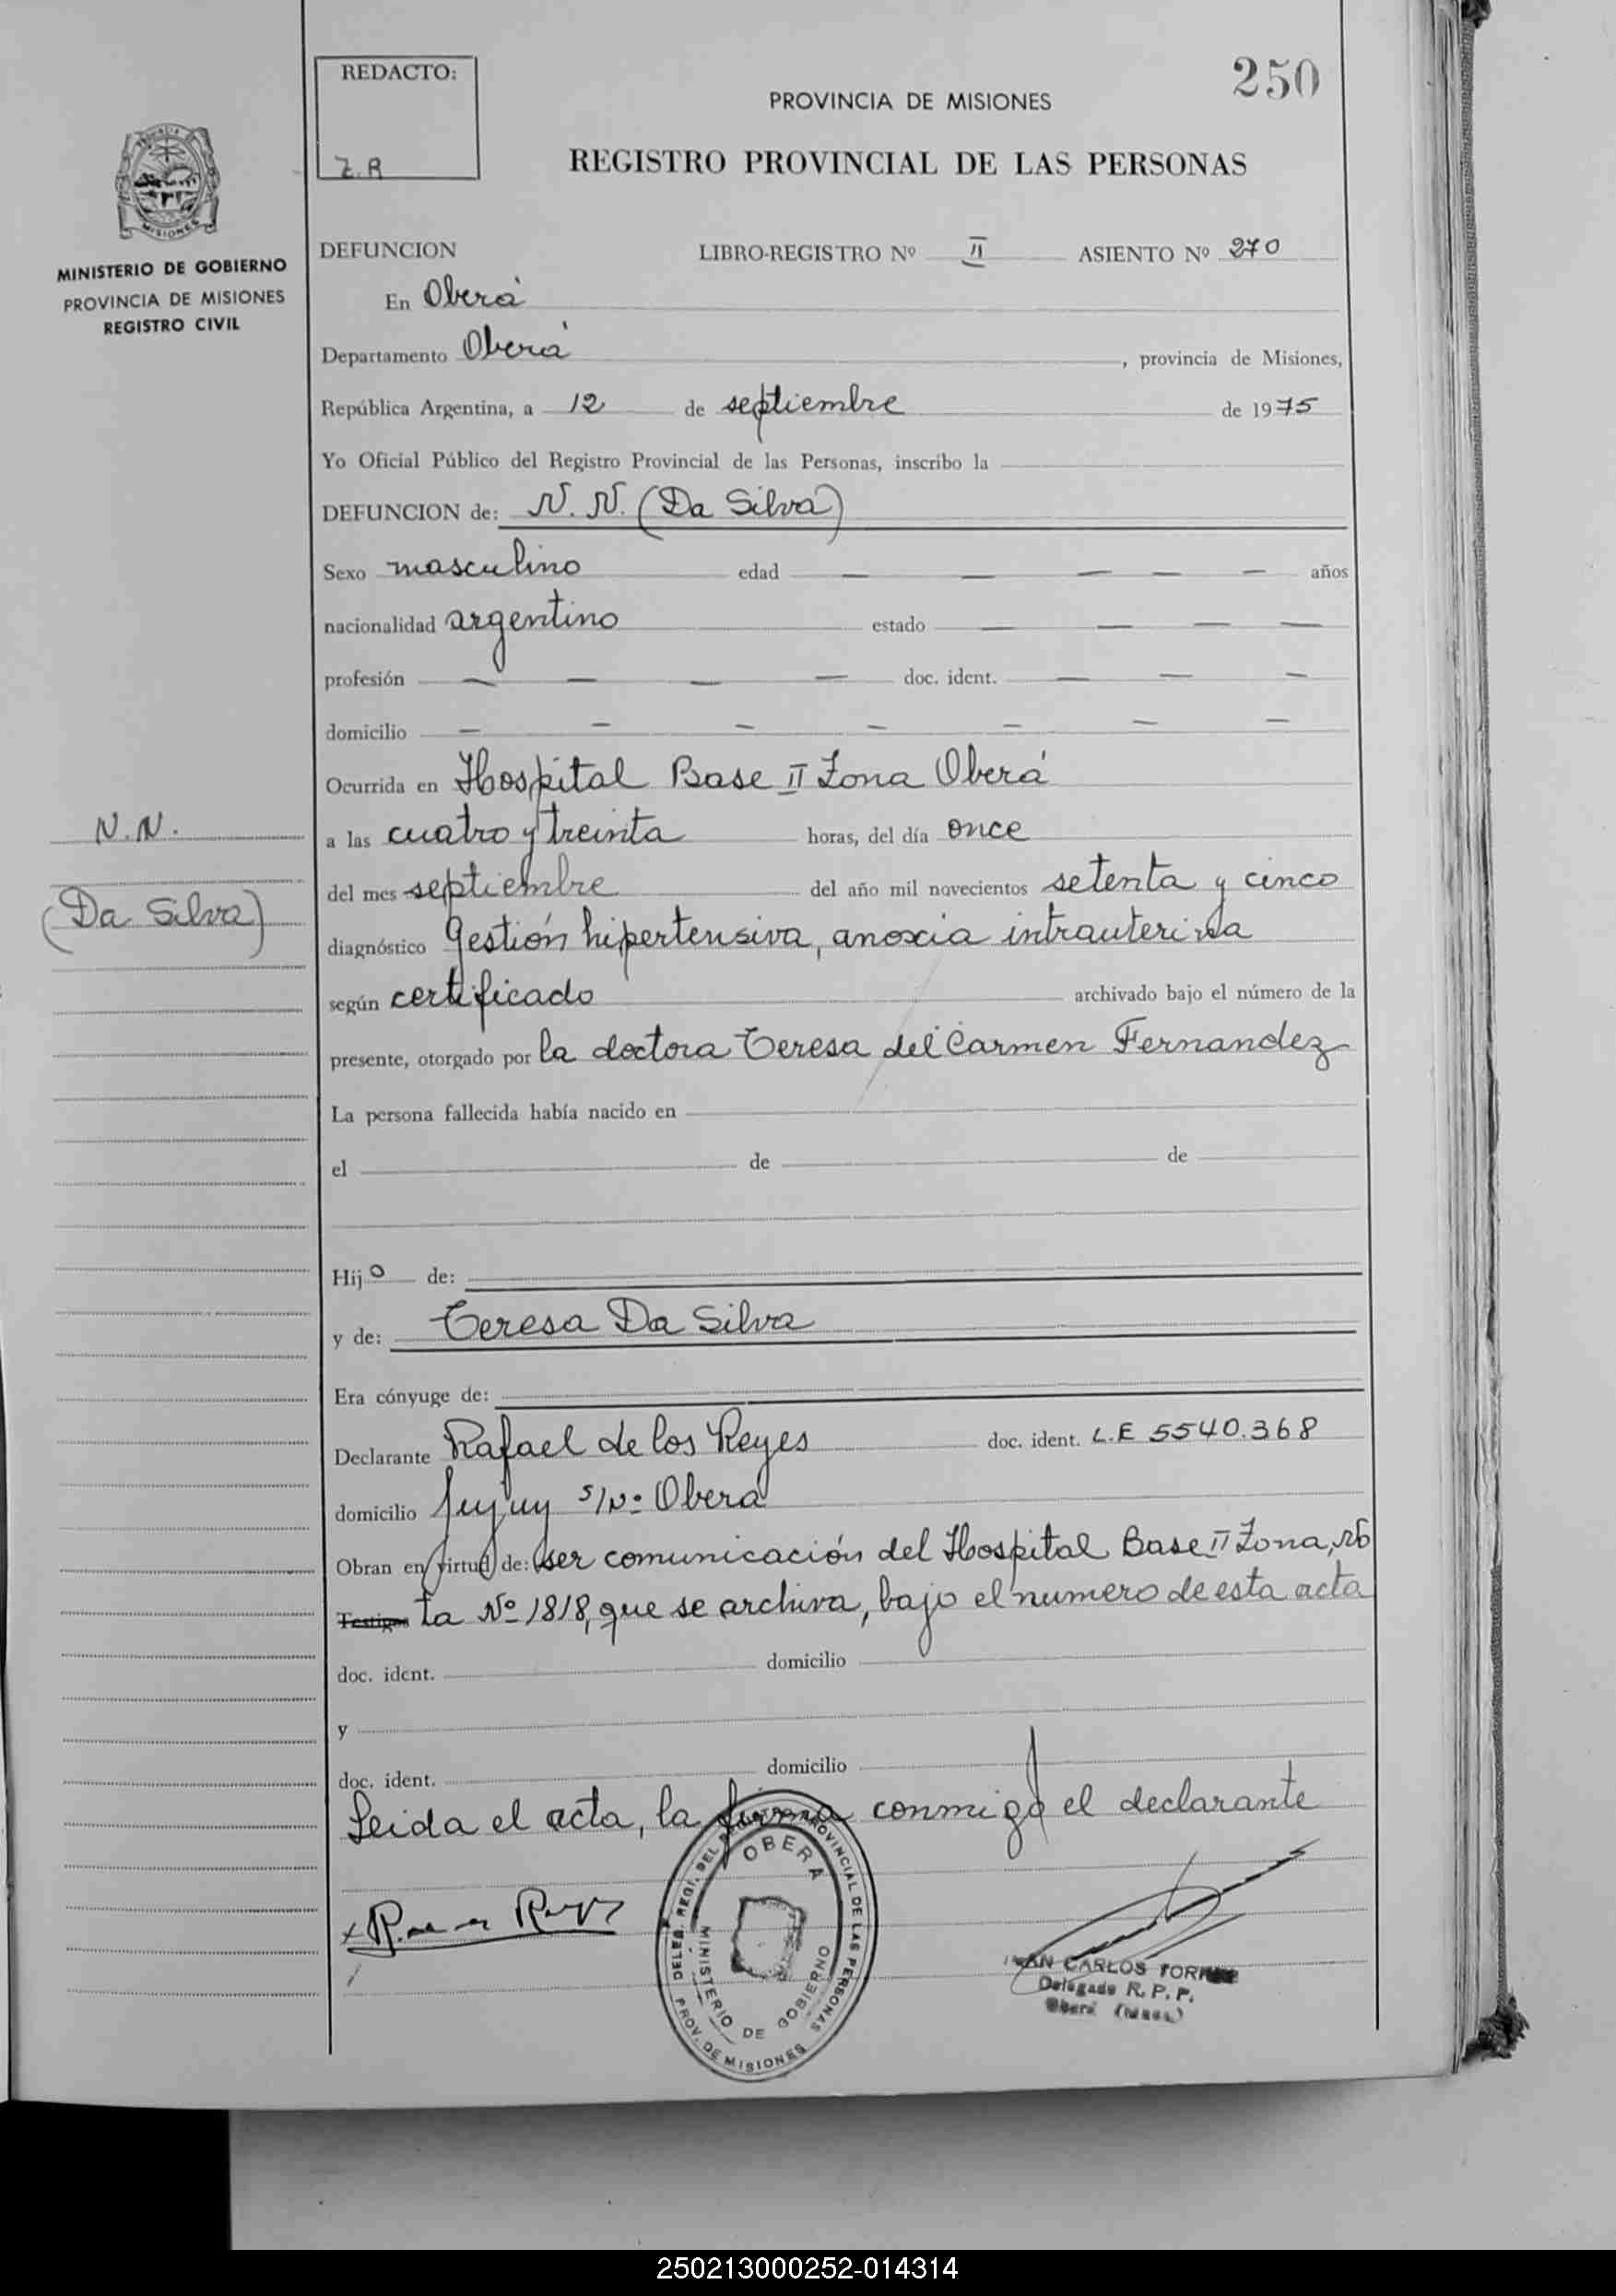 250
REDACTO:
Z.R
PROVINCIA DE MISIONES
REGISTRO PROVINCIAL DE LAS PERSONAS
MISIONES
MINISTERIO DE GOBIERNO
PROVINCIA DE MISIONES
REGISTRO CIVIL
DEFUNCION LIBRO-REGISTRO Nº II ASIENTO Nº 270
En Oberá
Departamento Oberá, provincia de Misiones,
República Argentina, a 12 de septiembre de 1975
Yo Oficial Público del Registro Provincial de las Personas, inscribo la
DEFUNCION de: N. N. (Da Silva)
Sexo masculino edad — — — — — años
nacionalidad argentino estado — — — —
profesión — — — — doc. ident. — — —
domicilio — — — — — — —
Ocurrida en Hospital Base II Zona Oberá
N.N.
(Da Silva)
a las cuatro y treinta horas, del día once
del mes septiembre del año mil novecientos setenta y cinco
diagnóstico Gestión hipertensiva, anoxia intrauterina
según certificado archivado bajo el número de la
presente, otorgado por la doctora Teresa del Carmen Fernandez
La persona fallecida había nacido en
el de de
Hijo de:
y de: Teresa Da Silva
Era cónyuge de:
Declarante Rafael de los Reyes doc. ident. L.E 5540.368
domicilio Jujuy s/Nº Oberá
Obran en virtud de: ser comunicación del Hospital Base II Zona, no
Testigos ta Nº 1818, que se archiva, bajo el numero de esta acta
doc. ident. domicilio
y
doc. ident. domicilio
Leida el acta, la firma conmigo el declarante
DELEG. REGI. DEL REGISTRO PROVINCIAL DE LAS PERSONAS
OBERA
MINISTERIO DE GOBIERNO
PROV. DE MISIONES
CARLOS TORRES
Delegado R. P. P.
Oberá (Mnes.)
250213000252-014314